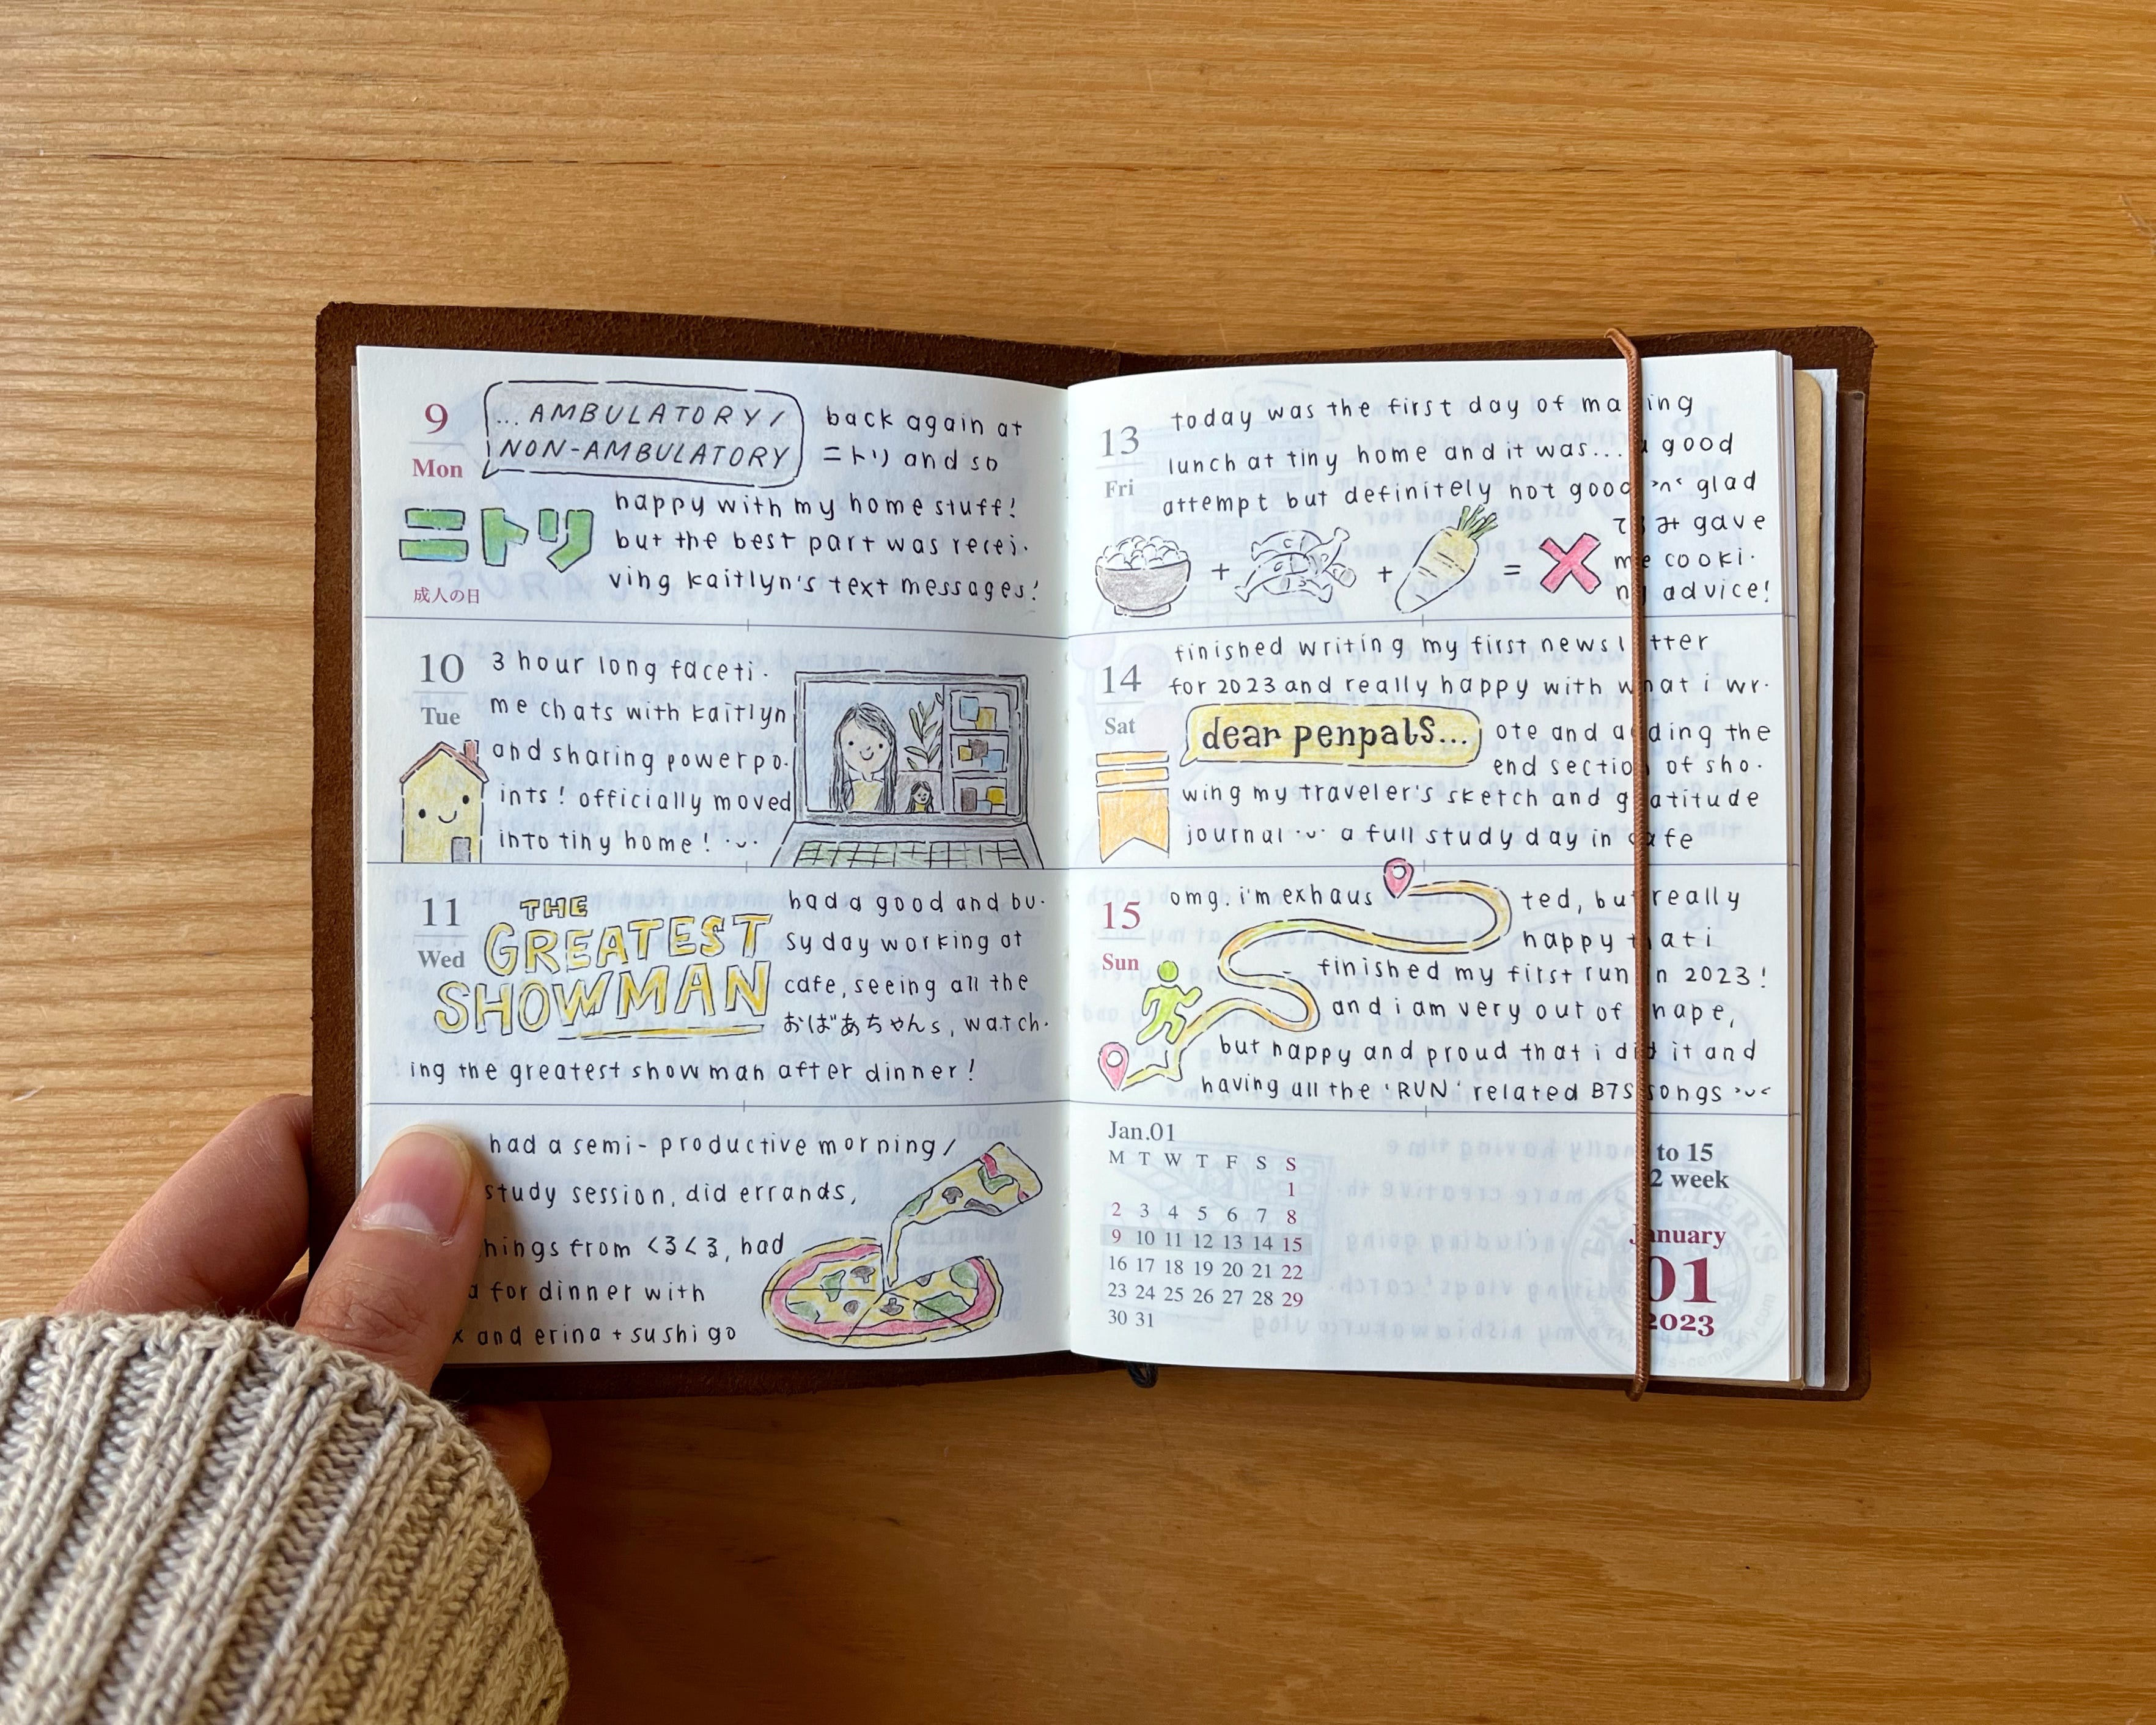 9
Mon
... AMBULATORY /
NON-AMBULATORY
back again at
ニトリ and so
happy with my home stuff!
ニトリ
but the best part was recei-
ving kaitlyn's text messages!
成人の日
10
Tue
3 hour long faceti-
me chats with kaitlyn
and sharing powerpo-
ints! officially moved
into tiny home!
11
Wed
THE
GREATEST
SHOWMAN
had a good and bu-
sy day working at
cafe, seeing all the
おばあちゃんs, watch-
ing the greatest showman after dinner!
had a semi-productive morning/
study session, did errands,
hings from くるくる, had
for dinner with
and erina + sushi go
13
Fri
today was the first day of ma ing
lunch at tiny home and it was... good
attempt but definitely not good glad
gave
me cooki-
n advice!
+ + =
14
Sat
finished writing my first newsl tter
for 2023 and really happy with what i wr-
dear penpals...
ote and adding the
end section of sho-
wing my traveler's sketch and g atitude
journal ·ᴗ· a full study day in cafe
15
Sun
omg. i'm exhaus ted, but really
happy that i
finished my first run in 2023!
and i am very out of hape,
but happy and proud that i did it and
having all the 'RUN' related BTS songs >ᴗ<
Jan.01
M T W T F S S
1
2 3 4 5 6 7 8
9 10 11 12 13 14 15
16 17 18 19 20 21 22
23 24 25 26 27 28 29
30 31
to 15
2 week
January
01
2023